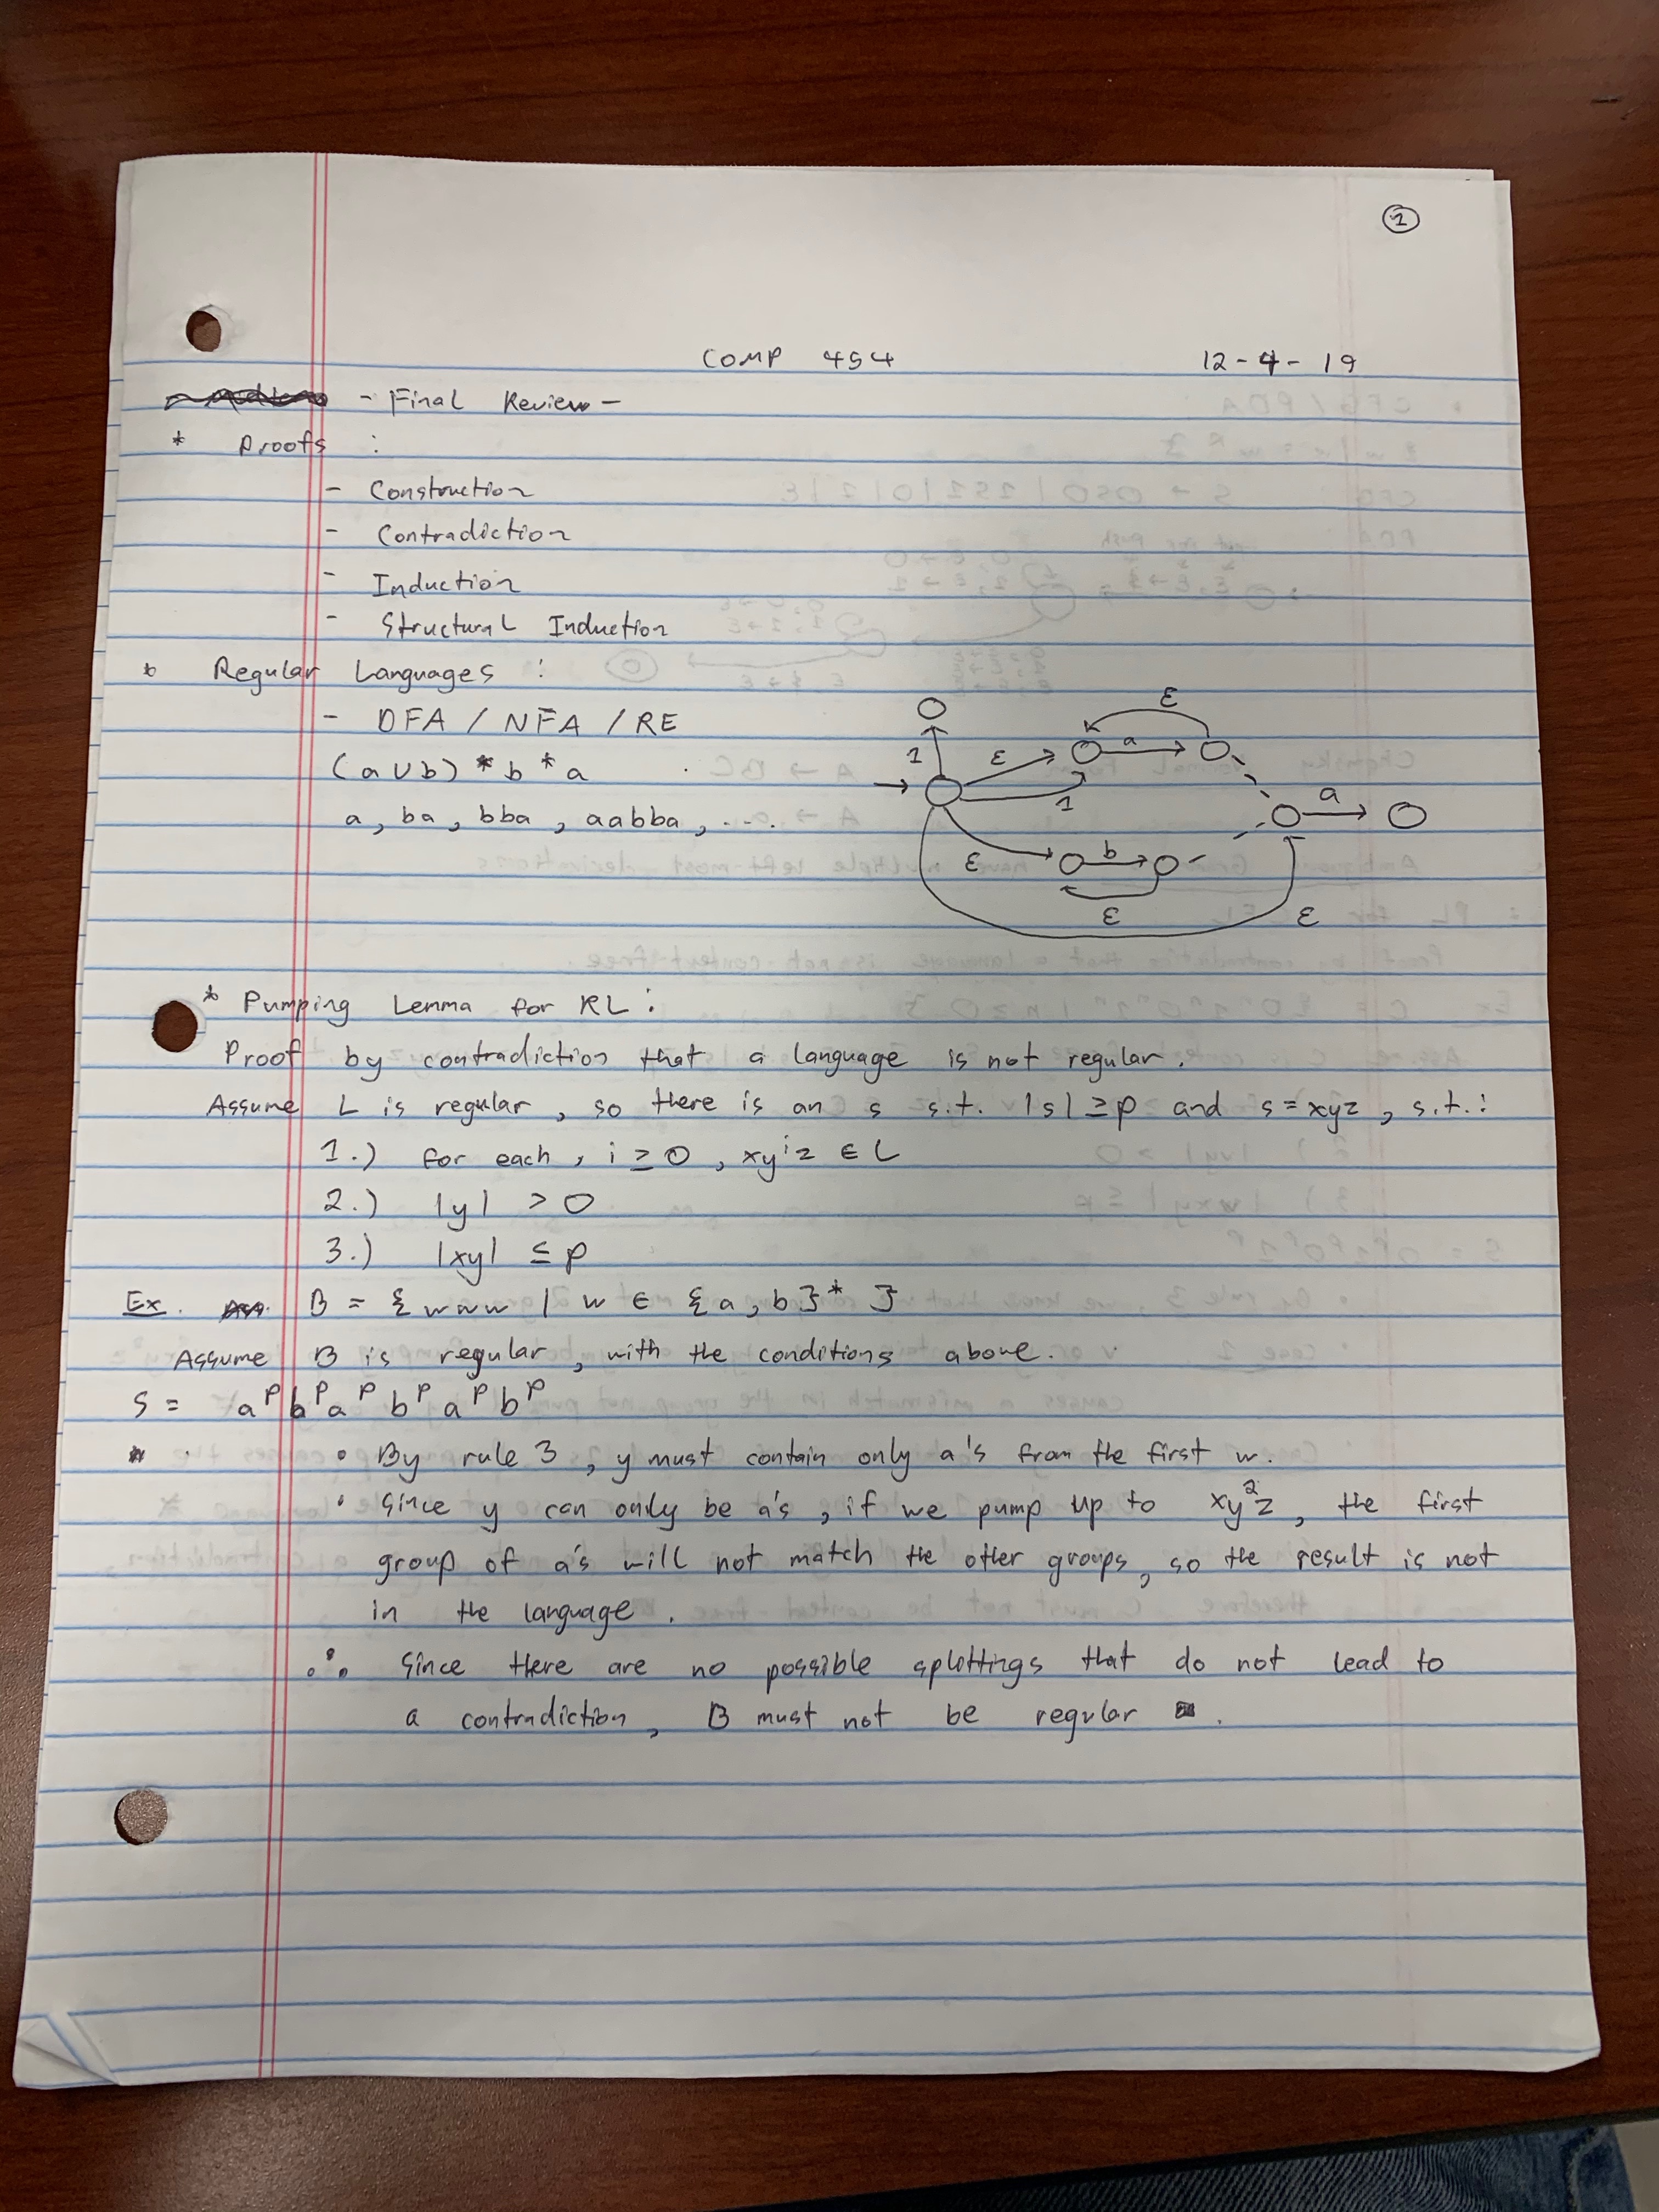 1
COMP 454 12-4-19
- Final Review -
* Proofs :
- Construction
- Contradiction
- Induction
- Structural Induction
* Regular Languages :
- DFA / NFA / RE
(a ∪ b)* b* a
a, ba, bba, aabba, ...
1 ε a ε
1
a
ε b
ε ε
* Pumping Lemma for RL :
Proof by contradiction that a language is not regular.
Assume L is regular, so there is an s s.t. |s| ≥ p and s = xyz, s.t. :
1.) for each, i ≥ 0, xyⁱz ∈ L
2.) |y| > 0
3.) |xy| ≤ p
Ex. B = {www | w ∈ {a, b}* }
Assume B is regular, with the conditions above.
S = aᵖbᵖaᵖbᵖaᵖbᵖ
* • By rule 3, y must contain only a's from the first w.
• Since y can only be a's, if we pump up to xy²z, the first
group of a's will not match the other groups, so the result is not
in the language.
∴ Since there are no possible splottings that do not lead to
a contradiction, B must not be regular ■.